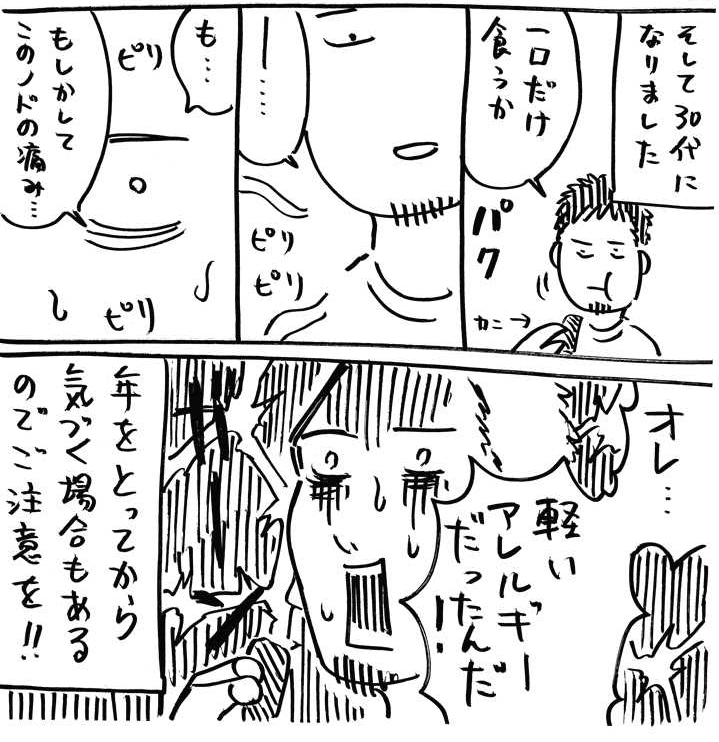 そして30代に
なりました
一口だけ
食うか
パク
カニ→
ー……
ピリ
ピリ
も……
ピリ
もしかして
このノドの痛み…
ピリ
オレ…
軽い
アレルギー
だったんだ
!
ガーン
年をとってから
気づく場合もある
のでご注意を!!